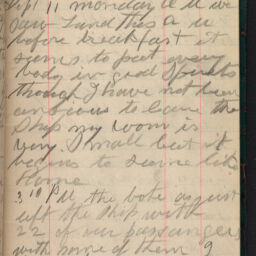 Sept 11 monday A M we
saw Land this A M
before breakfast it
seems to put every
body in good Spirits
though I have not been
anxious to leave the
Ship my room is
very Small but it
begins to seame like
Home
3 10 P M the bote as just
left the ship with
22 of our passangers
with some of them 9